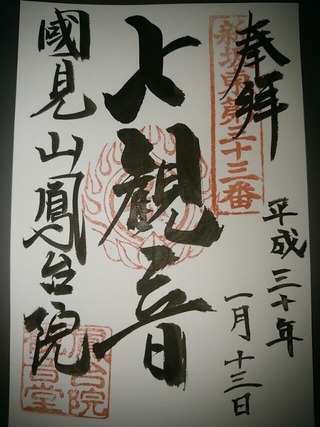 奉拝
新坂東第三十三番
平成三十年
一月十三日
七観音
國見山鳳台院